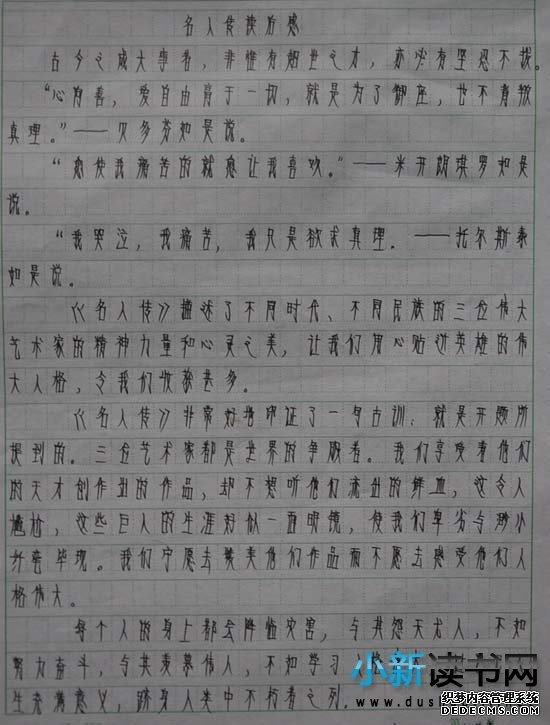 名人传读后感
古今之成大事者，非惟有超世之才，亦必有坚忍不拔。
“心向善，爱自由高于一切，就是为了御座，也不背叛
真理。”——贝多芬如是说。
“愈使我痛苦的就愈让我喜欢。”——米开朗琪罗如是
说。
“我哭泣，我痛苦，我只是欲求真理。——托尔斯泰
如是说。
《名人传》描述了不同时代、不同民族的三位伟大
艺术家的精神力量和心灵之美，让我们用心贴近英雄的伟
大人格，令我们收获甚多。
《名人传》非常好地印证了一句古训：就是开题所
提到的。三位艺术家都是世界的争服者。我们享受着他们
的天才创作出的作品，却不想听他们流出的鲜血，这令人
尴尬，这些巨人的生涯好似一面明镜，使我们卑劣与渺小
纤毫毕现。我们宁愿去赞美他们作品而不愿去感受他们人
格伟大。
每个人的身上都会降临灾害，与其怨天尤人，不如
努力奋斗，与其羡慕伟人，不如学习
生充满意义，跻身人类中不朽者之列。
小新读书网
www.dus
织梦内容管理系统